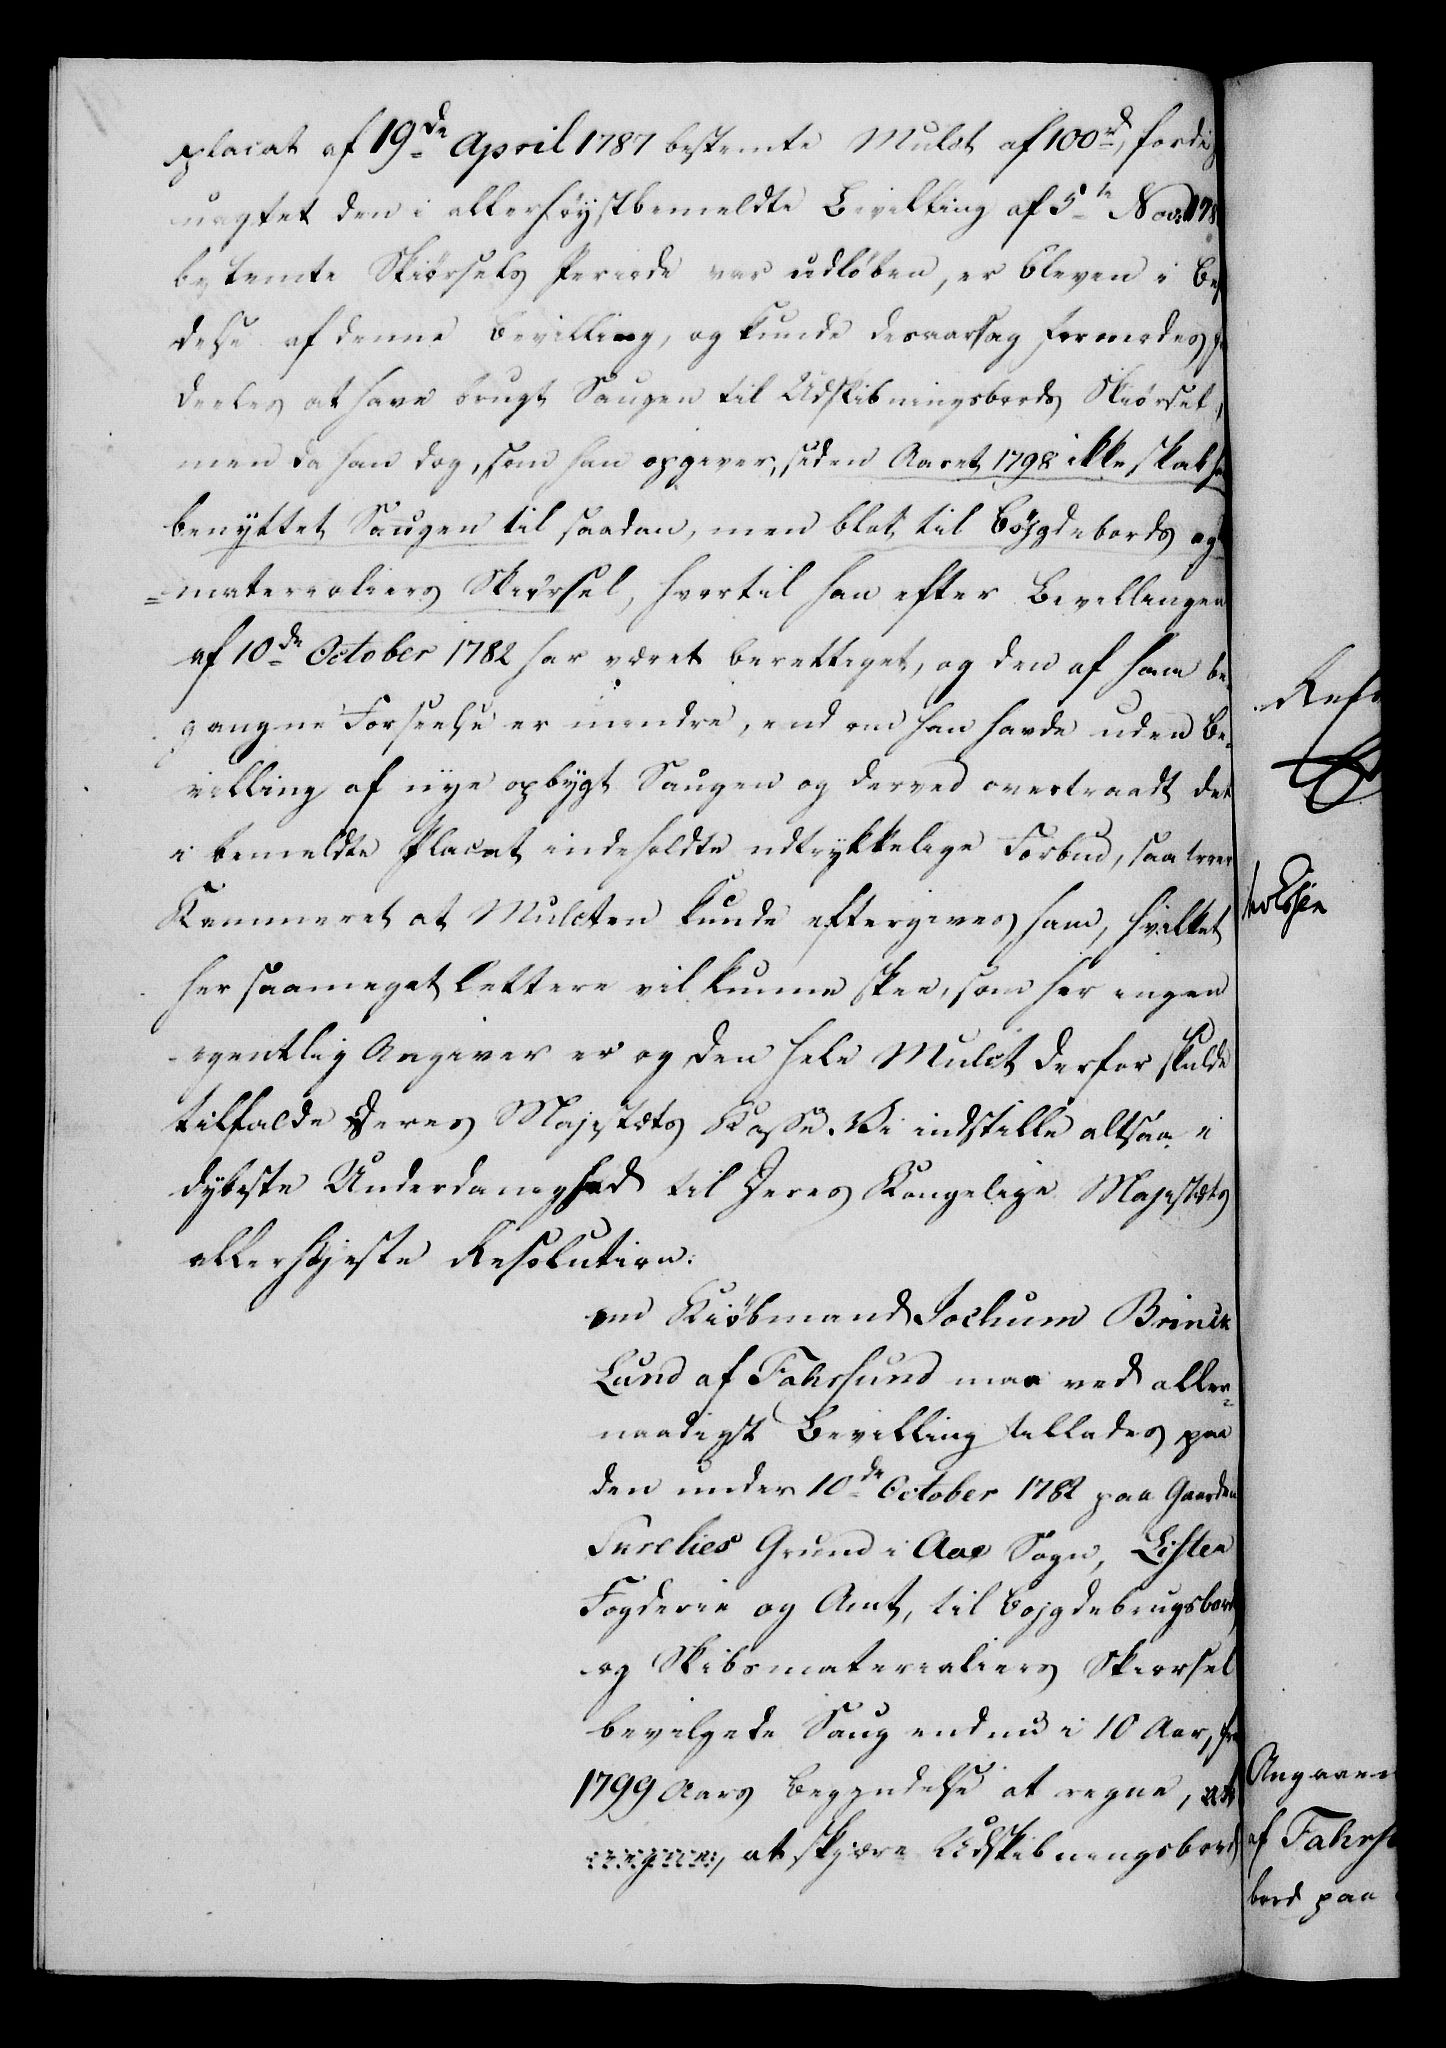 placat af 19de April 1787 bestemte Mulct af 100rd, fordi
uagtet den i allerhøystbemeldte Bevilling af 5te Nov: 178
bestemte Skiørsels Periode var udløben, er bleven i Be
delse af denne Bevilling, og kunde desaarsag formodes
deeles at have brugt Saugen til Udskibningsbords Skiørsel,
men da han dog, som han opgiver, siden Aaret 1798 ikke skal
benyttet Saugen til saadan, men blot til Bøygdebords og
materialiers Skiørsel, hvortil han efter Bevillingen
af 10de October 1782 har været berettiget, og den af ham be-
gangne Forseelse er mindre, end om han havde uden Be-
villing af nye opbygt Saugen og derved overtraadt det
i bemeldte Placat indeholdte udtrykkelige Forbud, saa troer
Kammeret at Mulcten kunde eftergives ham, hvilket
her saameget lettere vil kunne skee, som her ingen
egentlig Angiver er og den hele Mulct derfor skulde
tilfalde Deres Majestæts Kasse. Vi indstille altsaa i
dybeste Underdanighed til Deres Kongelige Majestæts
allerhøjeste Resolution:
om Kiøbmand Jochum Brinck
Lund af Fahrsund maa ved aller-
naadigst Bevilling tillades paa
den under 10de October 1782 paa Gaarden
Grund i Aae Sogn, Lister
Fogderie og Amt, til Bøjgdebrugsbord
og Skibsmaterialiers Skiørsel
bevilgede Saug endnu i 10 Aar, fra
1799 Aars Begyndelse at regne,
at skjære Udskibningsbord
Angaaen
af Fahrs
bord paa